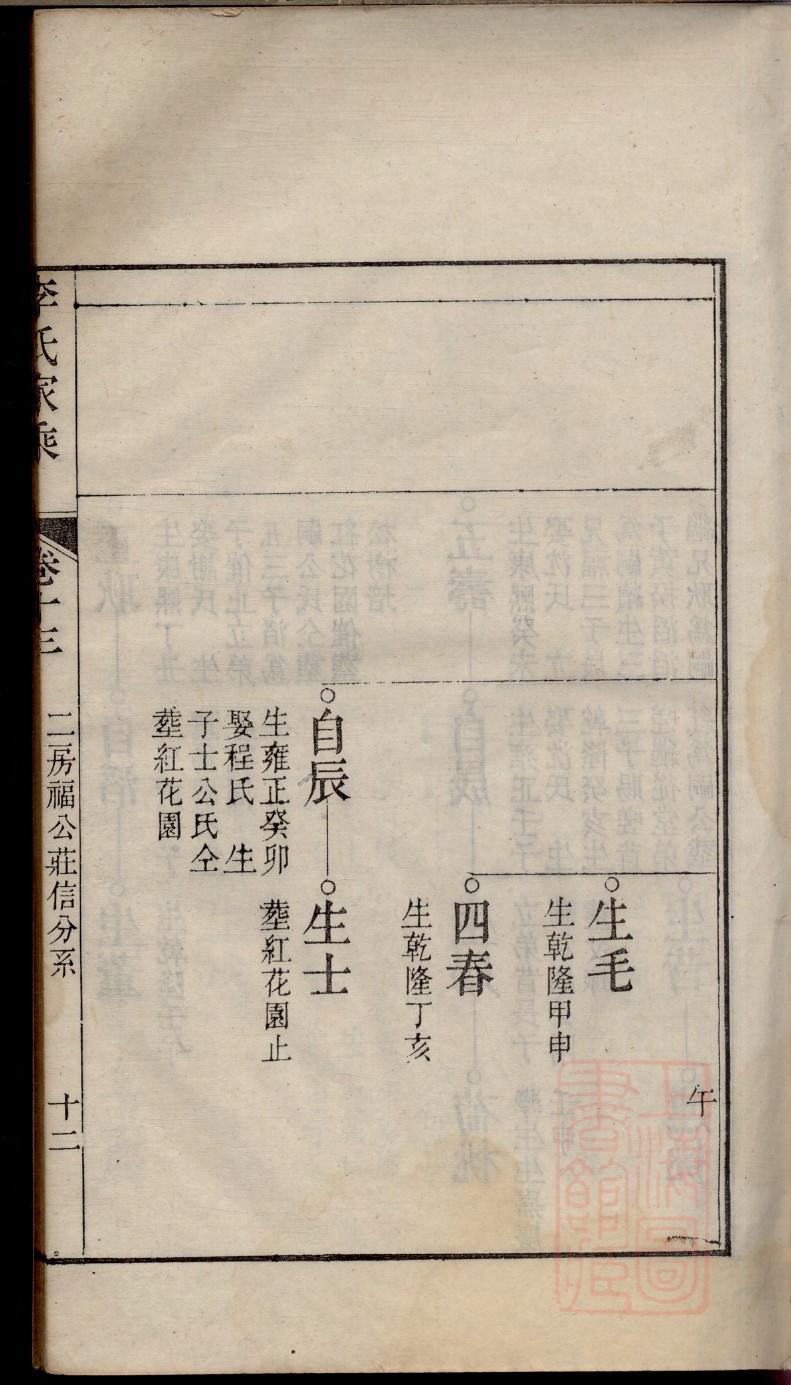 午
生毛
生乾隆甲申
四春
生乾隆丁亥
自辰
生雍正癸卯
娶程氏　生
子士公氏仝
塟紅花園
生士
塟紅花園止
李氏家乘
卷十三
二房福公莊信分系
十二